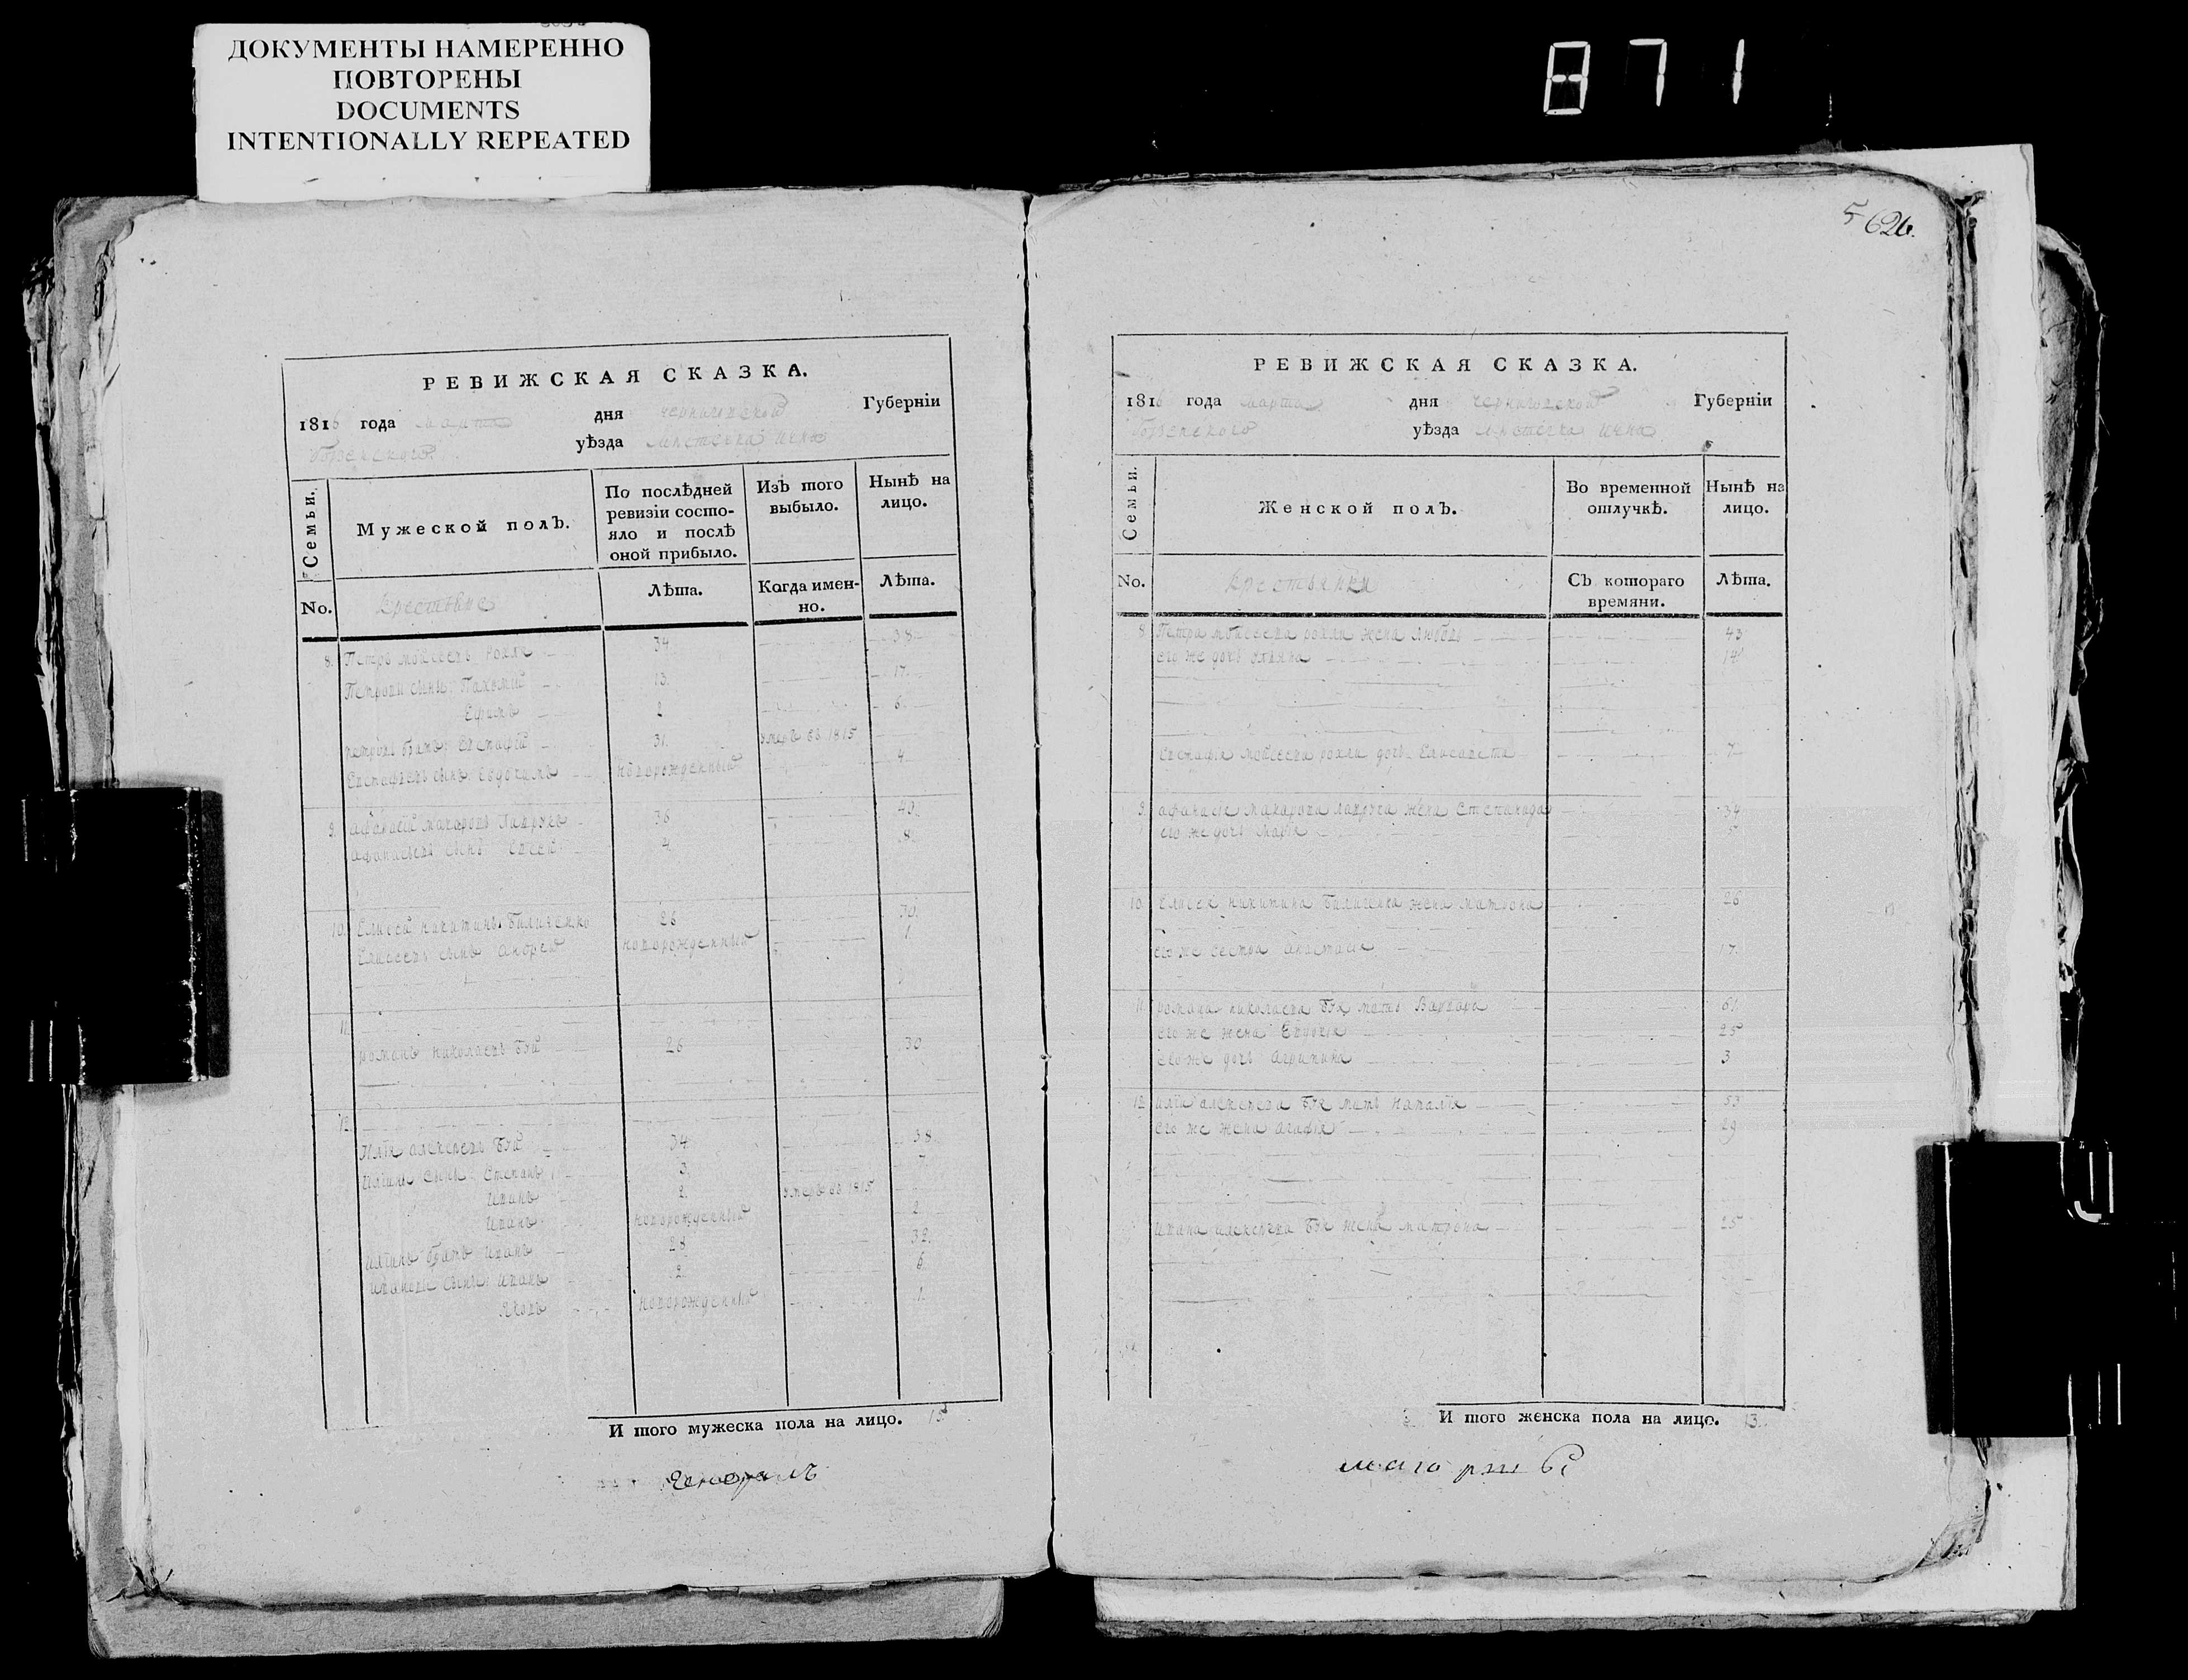 ДОКУМЕНТЫ НАМЕРЕННО
ПОВТОРЕНЫ
DOCUMENTS
INTENTIONALLY REPEATED
871
5 626.
РЕВИЖСКАЯ СКАЗКА.
1816 года марта дня черниговской Губерніи
уѣзда местечка ични
Семьи.
Мужеской полЪ.
По послѣдней ревизіи состояло и послѣ оной прибыло.
ИзЪ того выбыло.
НынѢ на лицо.
No. крестьяне
Лѣта.
Когда именно.
Лѣта.
8. Петръ мойсеевъ рохля 34. 38
Петровы сыны: Пахомій 13. 17.
Ефимъ 2 6.
петровъ братъ Евстафій 31. умеръ въ 1815
Евстафіевъ сынъ Евдокимъ новорожденный 4
9. афанасій макаровъ 36 40.
афанасіевъ сынъ 4 8
10. Елисей никитинъ Биличенко 26 30.
Елисеевъ сынъ андрей новорожденный 1
11.
романъ николаевъ Буй 26 30
12.
Илія алексеевъ Буй 34 38
Иліинъ сынъ Степанъ 3.
Иванъ 2. умеръ въ 1815
Иванъ новорожденный 2
Иліинъ братъ Иванъ 28 32.
Ивановы сыны: Иванъ 2. 6
Яковъ новорожденный 1
И того мужеска пола на лицо. 15
РЕВИЖСКАЯ СКАЗКА.
1816 года марта дня черниговской Губерніи
уѣзда местечка ични
Семьи.
Женской полЪ.
Во временной отлучкѢ.
НынѢ на лицо.
No. крестьянки
СЪ котораго времяни.
Лѣта.
8 Петра мойсеева рохли жена любовъ 43
его же дочь 14
Евстафія мойсеева рохли дочь Елисавета 7
9. афанасія макарова жена Степанида 34
его же дочь марія 5
10. Елисея никитина Биличенка жена матрона 26
его же сестра анастасія 17
11. романа николаева Буя мать Варвара 61
его же жена Евдокія 25
его же дочь агрипина 3
12 иліи алексеева Буя мать наталія 53
его же жена агафія 29
Ивана алексеева Буя жена матрона 25
И того женска пола на лицо. 13.